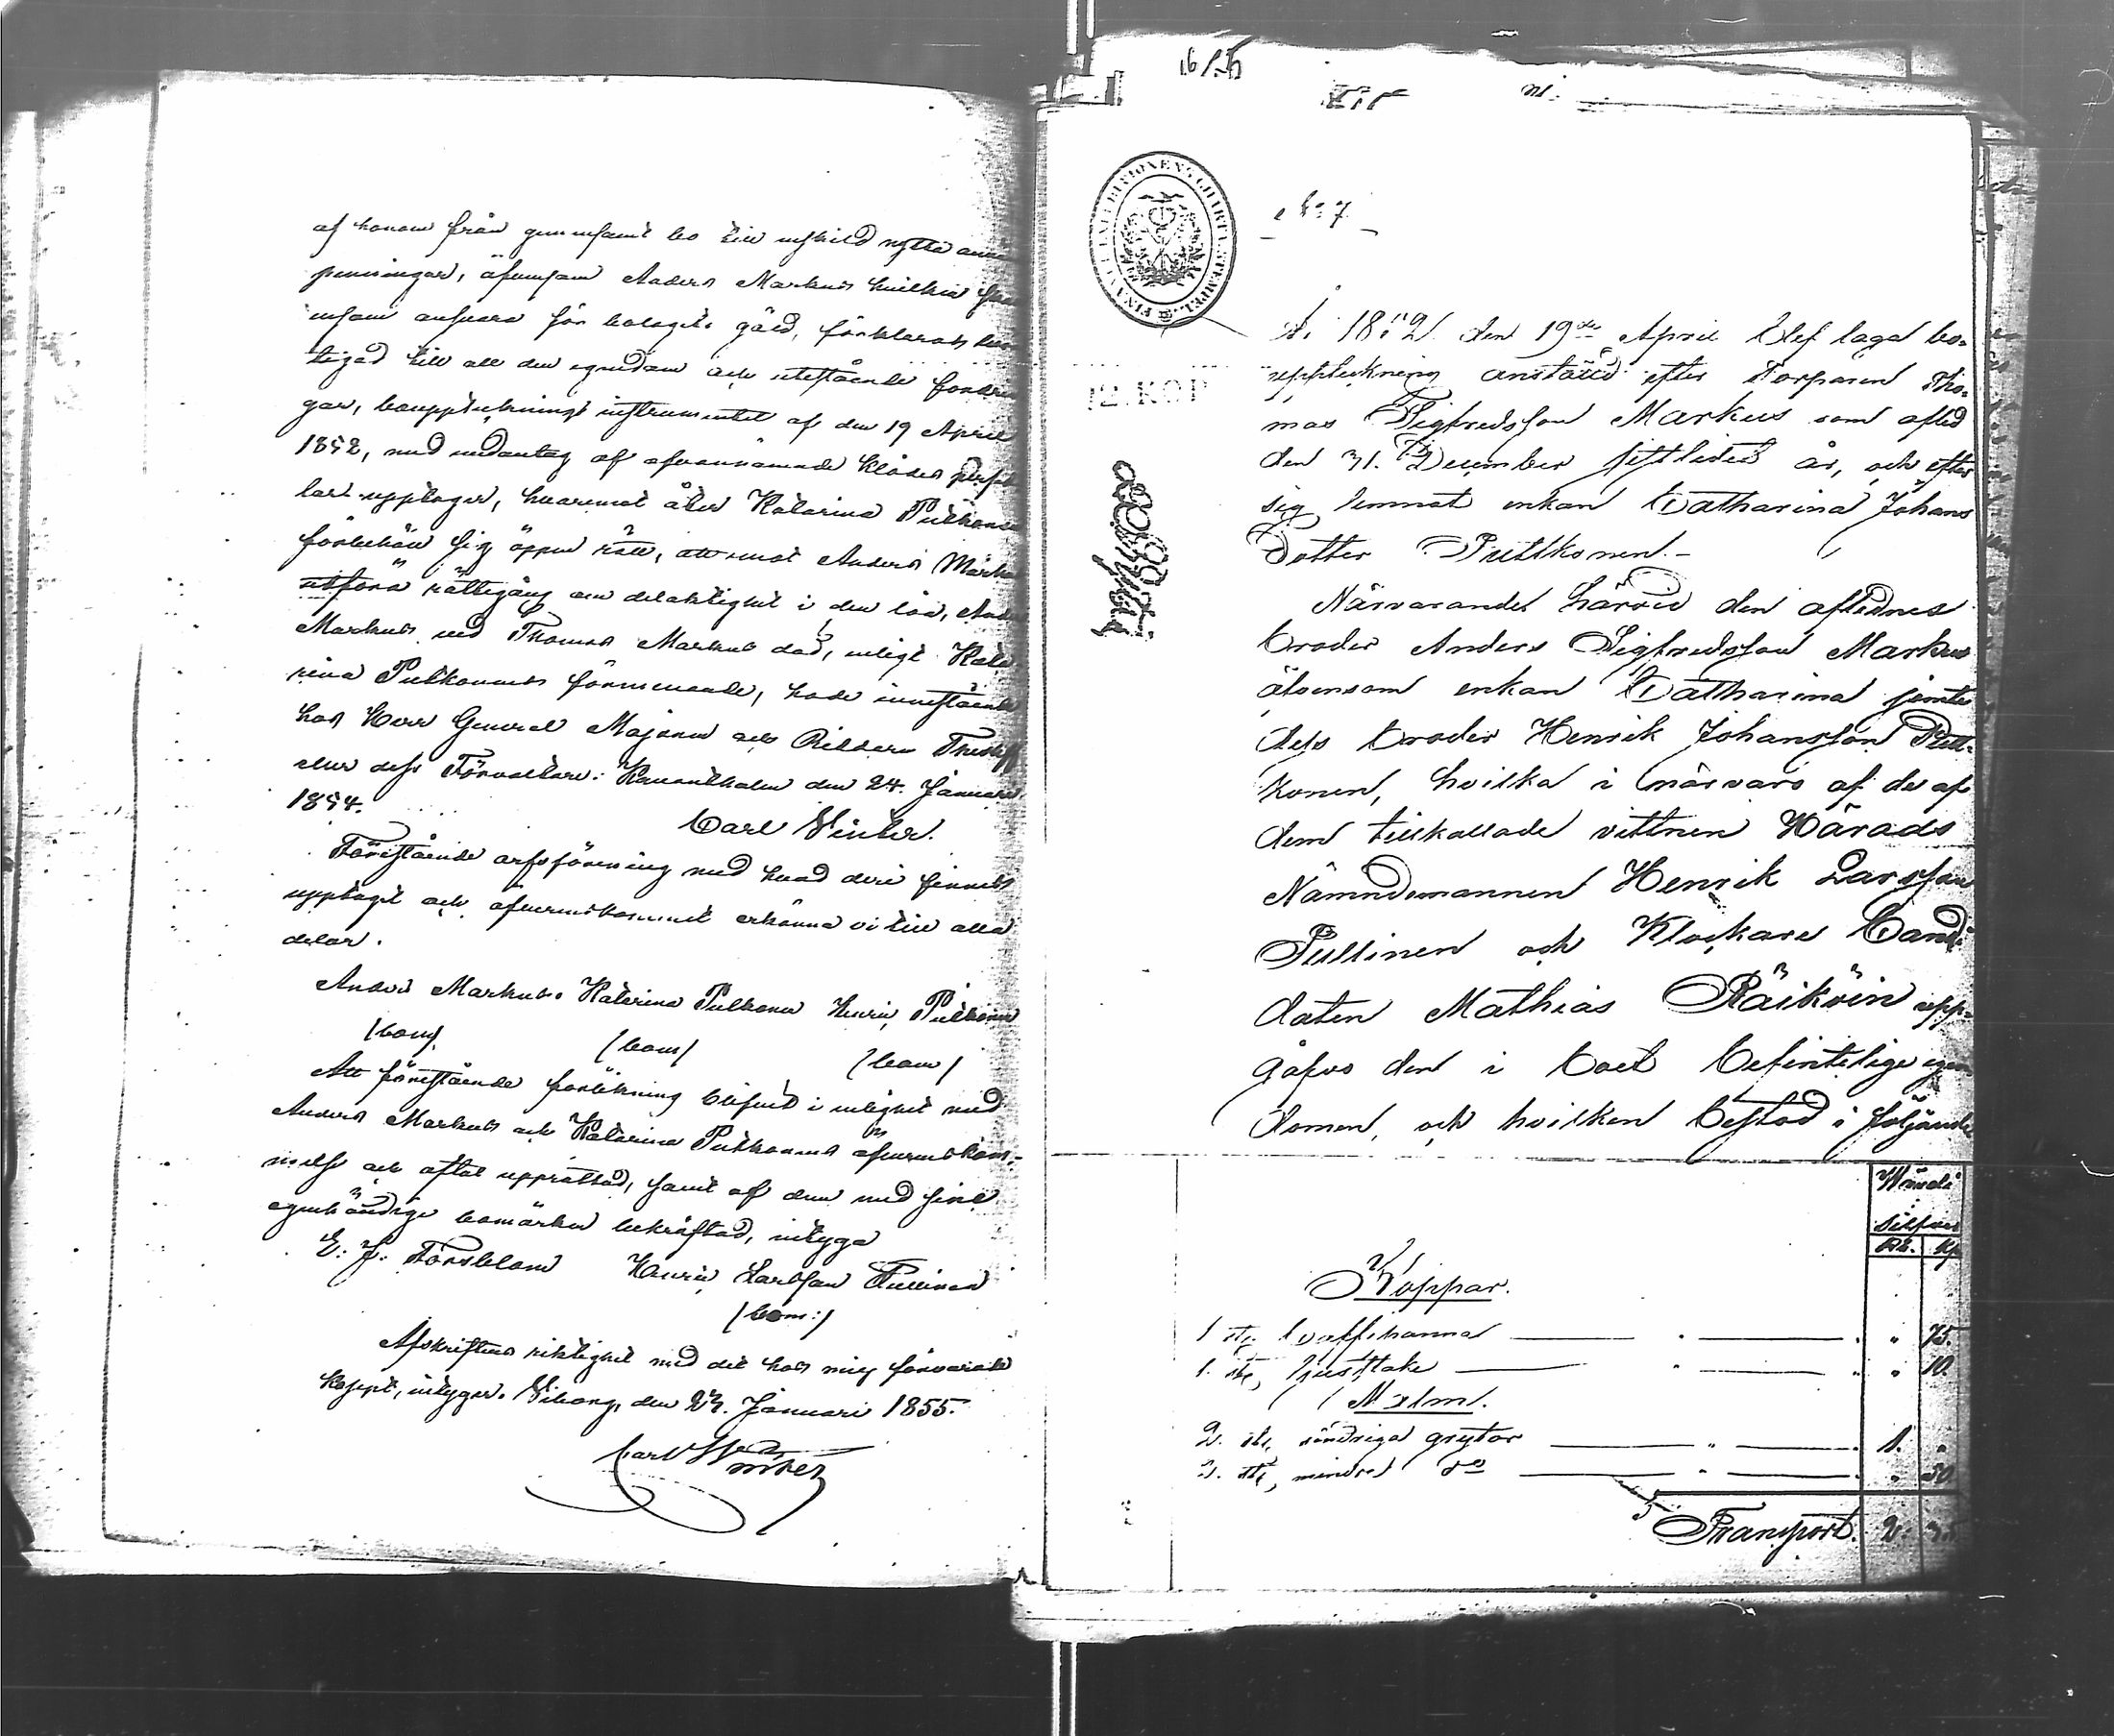 af honom från gemensamt bo till enskild nytta
penningar, äfvensom Anders Markus hvilken
ensam ansvara för bolagets gäld, förklarats
tigad till all den egendom och utestående
gar, bouppteckningsinstrumentet af den 19 April
1852, med undantag af ofvannämnde kläder
upptager, hvaremot åter Katarina Pulkonen
förbehöll sig öppen rätt, att emot Anders Markus
utföra rättegång om delaktighet i den lön,
Markus vid Thomas Markus död, enligt Kata
rina Pulkonens förmenande, hade innestående
hos Herr General Majoren och Riddaren Thesleff
eller dess Förvaltare. den 24. Januari
1854.
Carl Winter.
Förestående arfsförening med hvad deri finnes
upptaget och öfverenskommet erkänna vi till alla
delar.
Anders Markus. Katarina Pulkonen Henric Pulkonen
/bom/ /bom/ /bom/
Att förestående förlikning blifvit i enlighet med
Anders Markus och Katarina Pulkonens öfverenskom-
melse och aftal upprättad, samt af dem med sine
egenhändige bomärken bekräftad, intyga
E: J: Forsblom Henric Larsson Pullinen
/bom:/
Afskriftens riktighet med det hos mig förvarade
koncept, intygar. Viborg, den 23. Januari 1855.
Carl Winter
FINSKA EXPEDITIONENS CHARTÆ STEMPEL
No 7
12. KOP
År 1852 den 19de April blef laga bo-
uppteckning anställd efter Torparen Tho-
mas Sigfredsson Markus som afled
den 31. December sistledet år, och efter
sig lemnat enkan Catharina Johans
Dotter Pullkonen.-
Närvarande härvid den aflednes
broder Anders Sigfredsson Markus
äfvensom enkan Catharina jemte
dess broder Henrik Johansson Pull-
konen, hvilka i närvaro af de af
dem tillkallade vittnen Härads
Nämndemannen Henrik Larsson
Pullinen och Klockare Candi
daten Mathias Räiköin upp-
gåfvo den i boet befinteliga egen
domen, och hvilken bestod i följande
Värde
i
Silfver
Rb. Kp
Koppar.
1 st. Caffekanna " 75.
1. st, ljusstake " 10.
Malm.
2. st, söndriga grytor 1. "
2. st, mindre do " 50
Transport. 2. 35